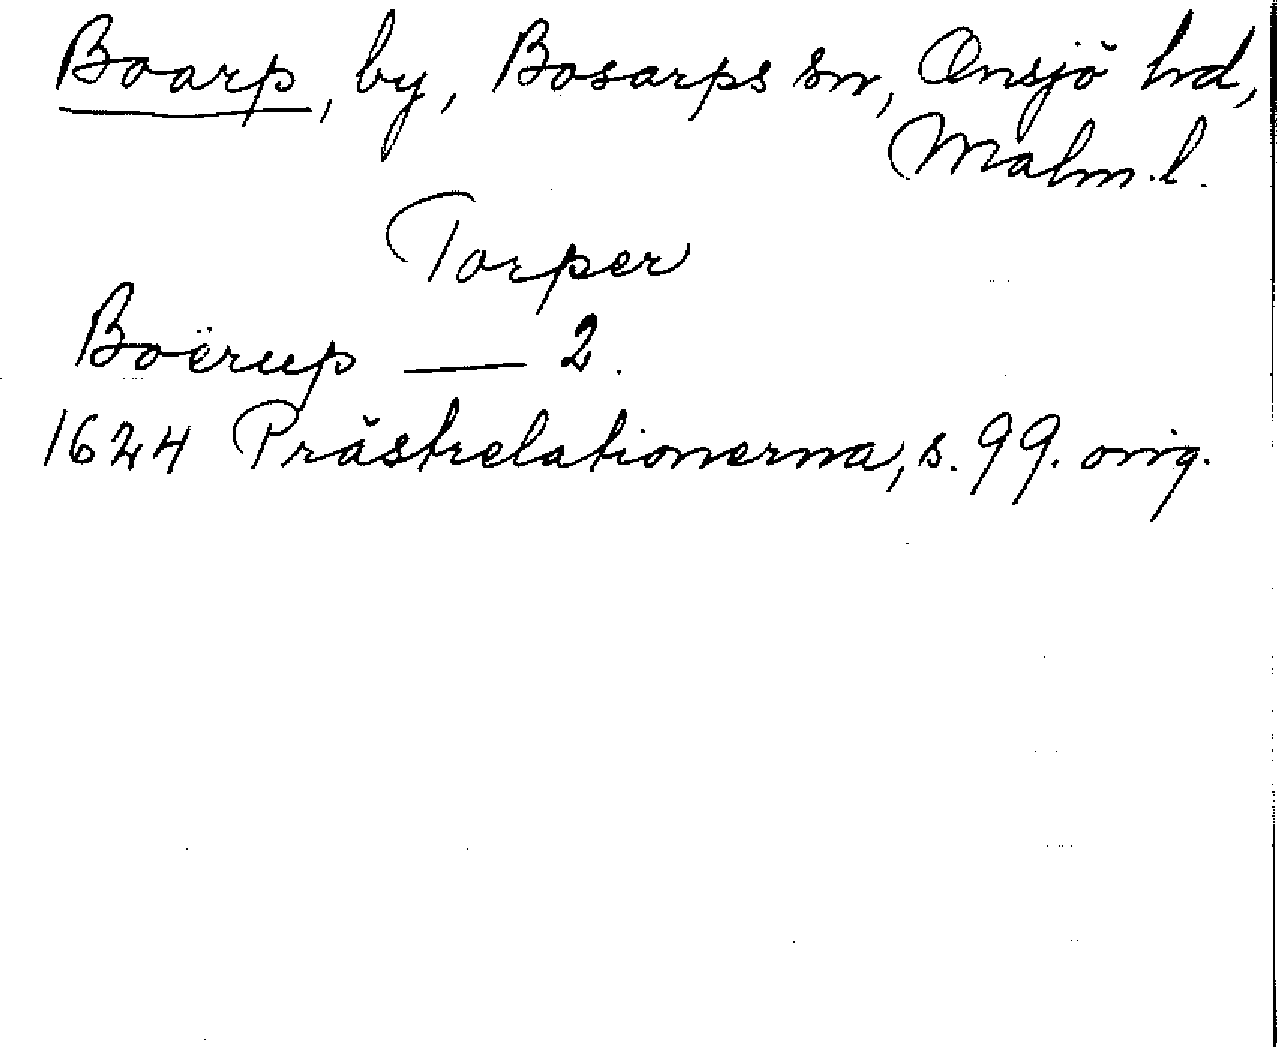 Boarp, by, Bosarps sn, Onsjö hd,
Malm.l.
Torper
Boërup — 2.
1624 Prästrelationerna, s. 99. orig.